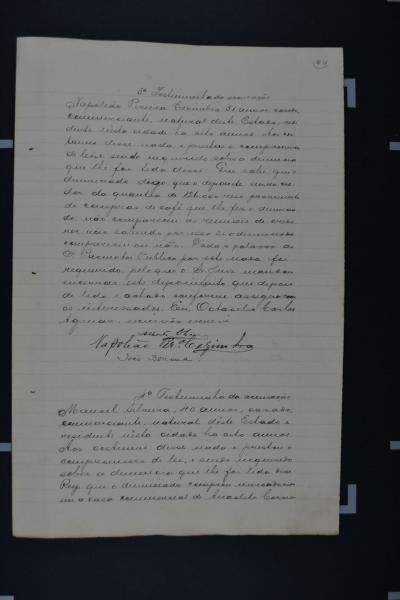 3ª Testemunha da accusação
Napoleão Pereira Coimbra 31 annos casado
commerciante, natural deste Estado, resi
dente nesta cidade ha oito annos. Aos cos
tumes disse nada e prestou o compromisso
de lei e sendo inquirido sobre a denuncia
que lhe foi lida disse: Que sabe que o
denunciado
que o depoente sendo cre
dor da quantia de 126.000 reis proveniente
de compras de café que lhe fez o denuncia
do não compareceu á reunião de credo
res não sabendo por isso si o denunciado
compareceu ou não. Dada a palavra ao
Dr. Promotor Publico por este nada foi
requerido, pelo que o Dr. Juiz mandou
encerrar este depoimento que depois
de lido e achado conforme assignam
os interessados. Eu, Octavilio Carlos
Aguiar, escrivão escrevi
Napoleão Pr.ª Coimbra
João

4ª Testemunha da accusação
Manoel Silveira, 40 annos, casado,
commerciante, natural deste Estado e
residente nesta cidade ha oito annos.
Aos costumes disse nada e prestou o
compromisso de lei, e sendo inquirido
sobre a denuncia que lhe foi lida disse
que o denunciado comprou mercadorias
na casa commercial de